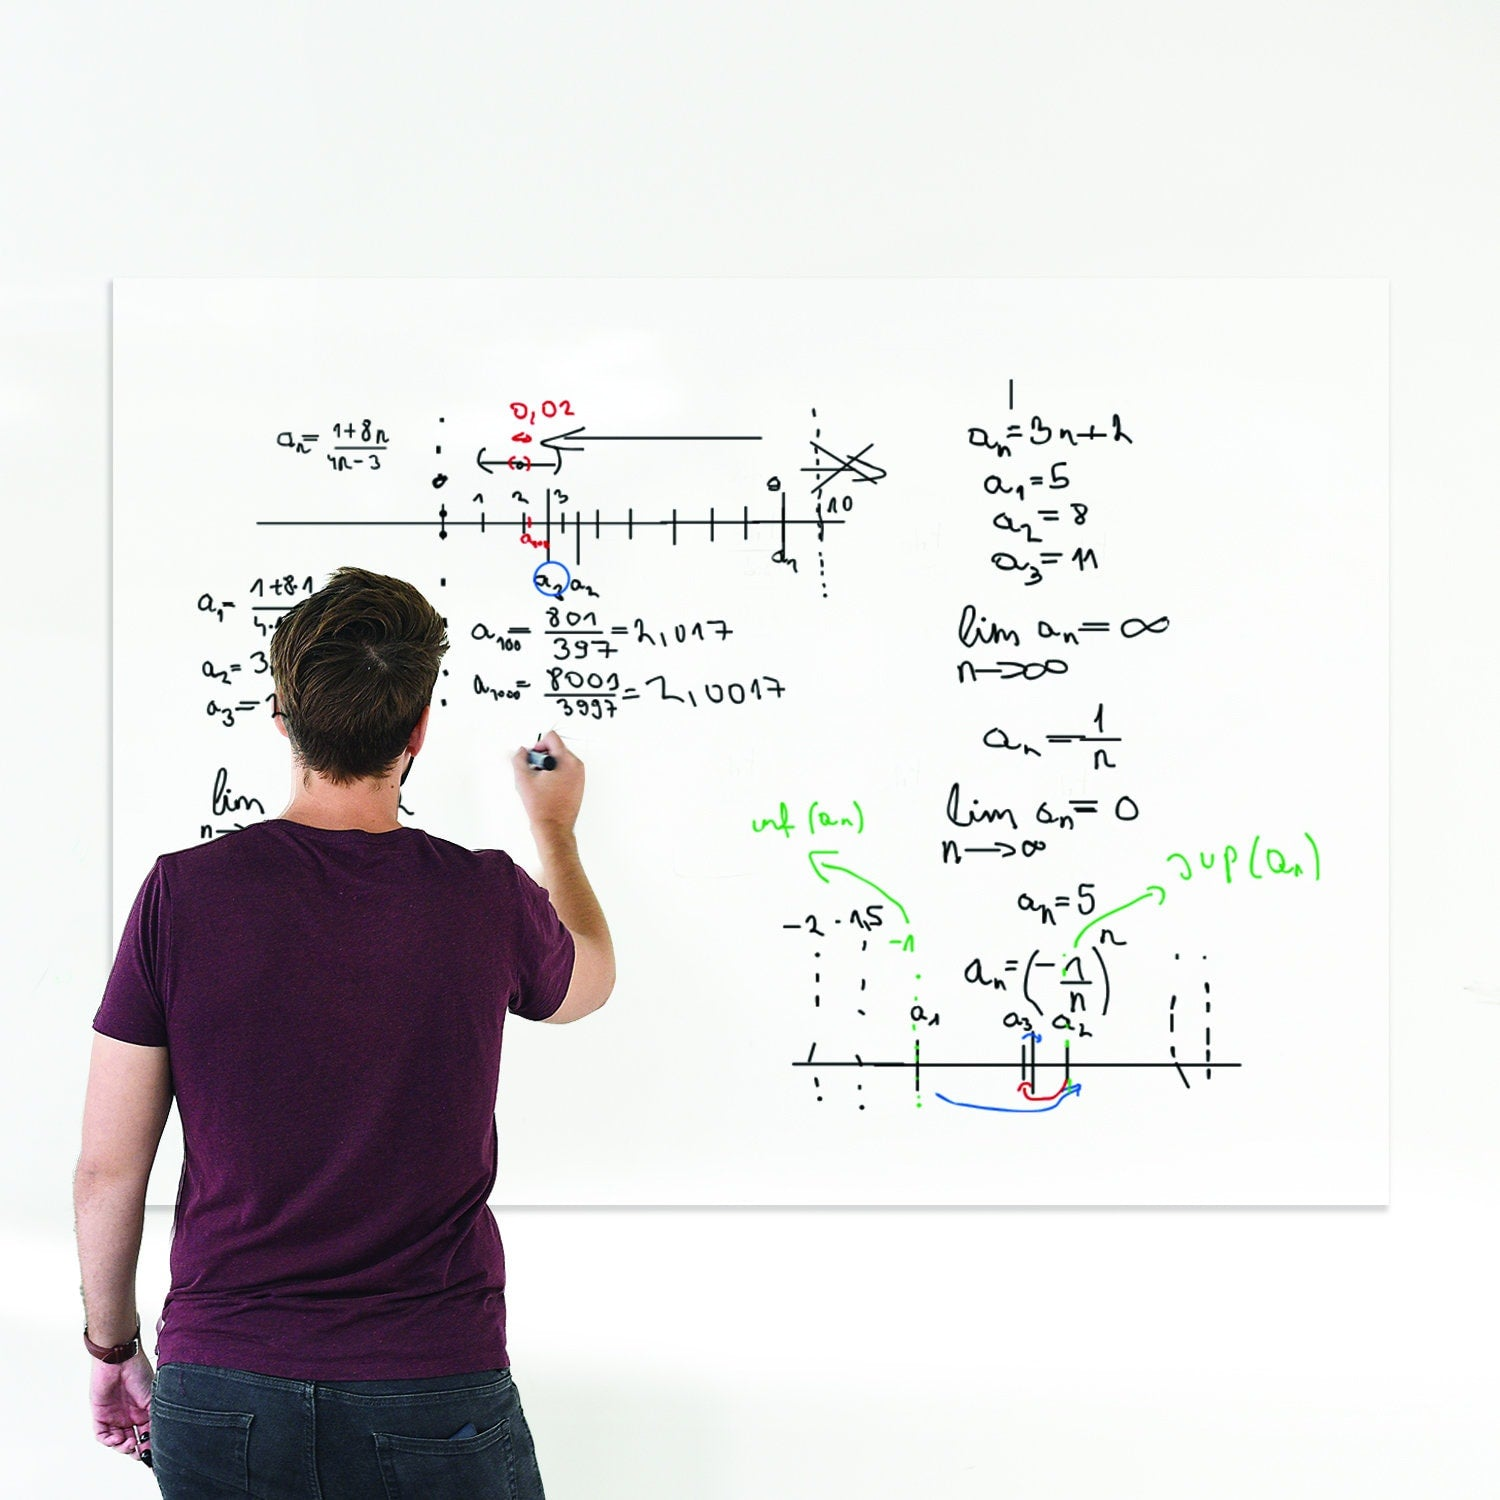 0,02
aₙ = (1+8n)/(4n-3)
1 2 3 9 10
a₁₀₀ a₃ a₂ a₁
a₁ = (1+8·1)/(4·
a₂ = 3
a₃ = 2
a₁₀₀ = 801/397 = 2,017
a₁₀₀₀ = 8001/3997 = 2,0017
lim
n→
aₙ = 3n+2
a₁ = 5
a₂ = 8
a₃ = 11
lim aₙ = ∞
n→∞
aₙ = 1/n
lim aₙ = 0
n→∞
aₙ = 5
inf(aₙ)
sup(aₙ)
-2 -1,5 -1
aₙ = (-1/n)ⁿ
a₁ a₃ a₂